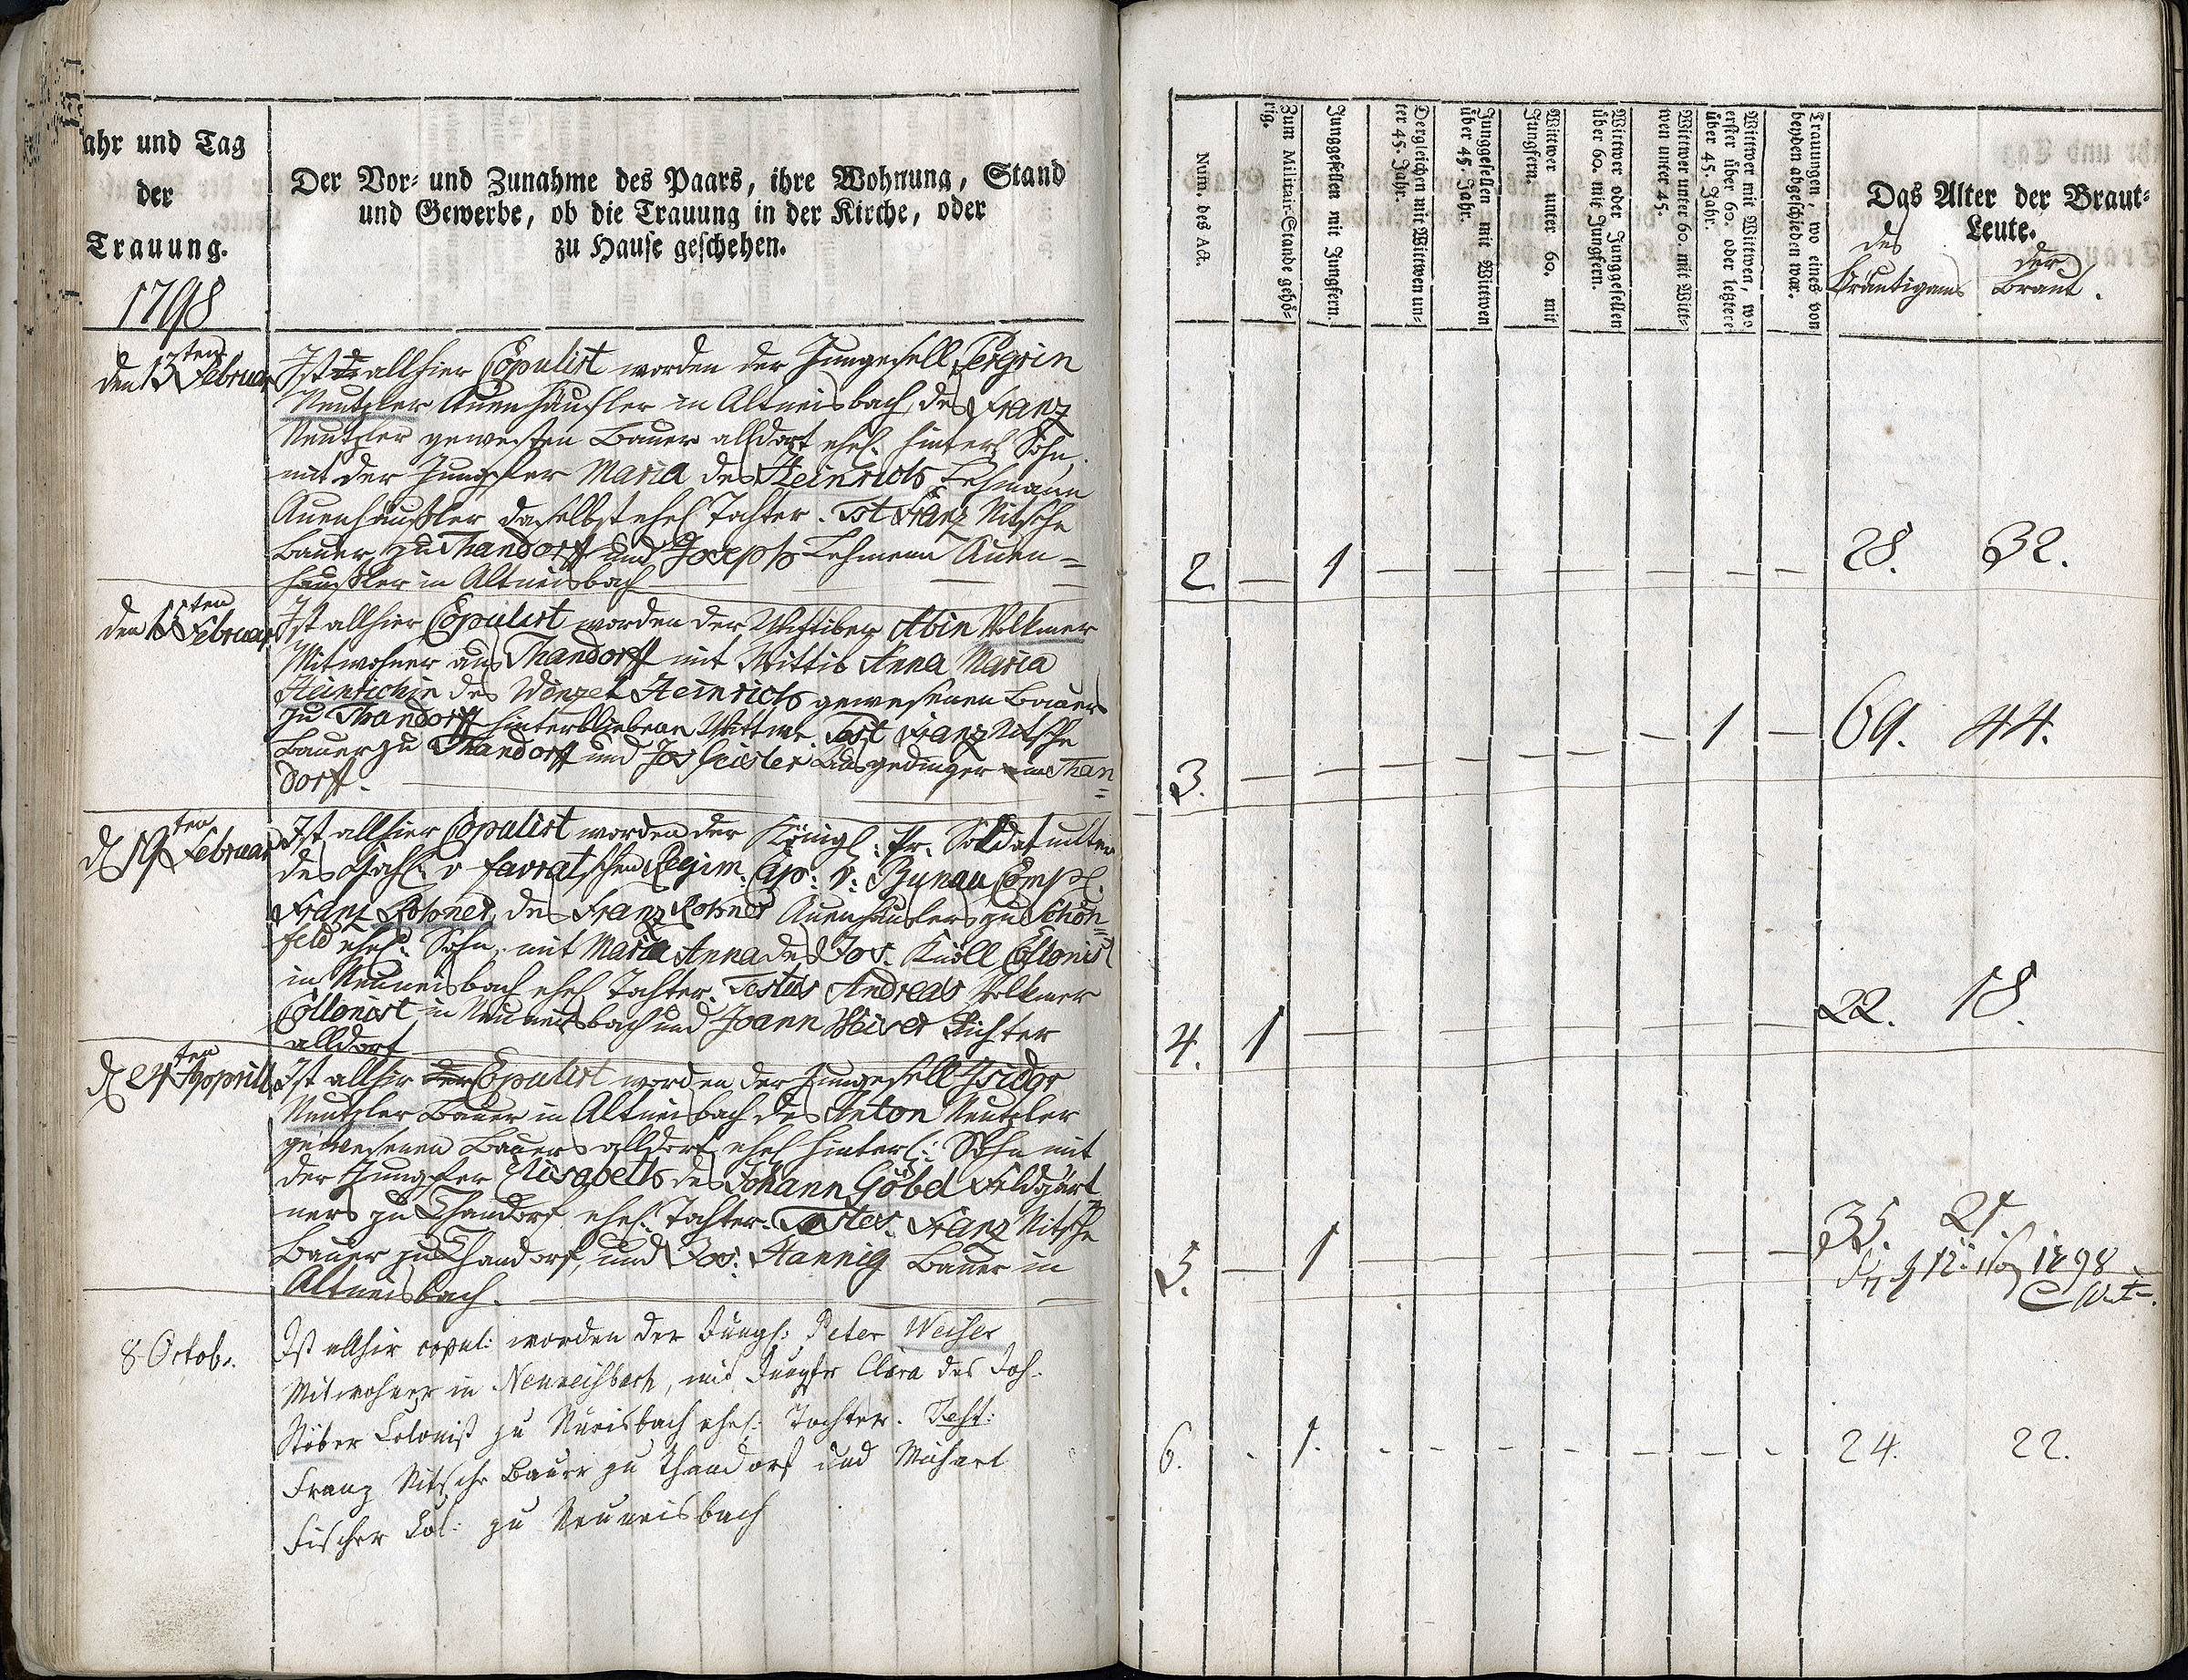 ahr und Tag
der
Trauung.
1798
Der Vor- und Zunahme des Paars, ihre Wohnung, Stand
und Gewerbe, ob die Trauung in der Kirche, oder
zu Hause geschehen.
den 13ten Februar
Ist allhier Copulirt worden der Jungesell Peregrin
Neutzler Auenhäusler in Altneisbach, des Franz
Neutzler gewesten Bauer alldort ehel. hinterl Sohn
mit der Jungfer Maria des Heinrich Lehmann
Auenhäusler daselbst ehel Tochter. Tst Franz Nitsche
Bauer zu Thandorff und Joseph Lehmenn Auen=
häusler in Altneisbach
den Februar
Ist allhier Copulirt worden der Wittiber Albin Volkmer
Mitwohner aus Thandorff mit Wittib Anna Maria
Heinrichin des Wenzel Heinrich gewesenen Bauers
zu Thandorff hinterbliebene Wittwe. Test Franz Nitsche
Bauer zu Thandorff und Jos Geisler Ausgedinger in Than
=
dorff.
d 19ten Februar
Ist allhier Copulirt worden der Königl: Pr. Soldat unter
des v favratschen Regim: Cap: v: Bünau Comp.
Franz Rohner, des Franz Rohner Auenhäuslers zu Schön=
feld ehel: Sohn, mit Maria Anna des Jos. Knoll Collonist
in Neuneisbach ehel Tochter. Testes Andreas Volkmer
Collonist in Neuneisbach und Joann Weiser Richter
alldort
d 24ten Apprill
Ist allhir der Copulirt worden der Jungesell Isidor
Neutzler Bauer in Altneisbach des Anton Neutzler
gewesenen Bauers alldort ehel hinterl: Sohn mit
der Jungfer Elisabeth des Johann Göbel Feldgärt
ners zu Thandorf ehel: Tochter. Testes. Franz Nitsche
Bauer zu Thandorf, und Jos: Hannig Bauer in
Altneisbach.
8 Octob.
Ist allhir copul: worden der Jungs: Peter Weiser
Mitwohner in Neuneisbach, mit Jungfr Clara des Joh.
Stöber Colonist zu Nueisbach ehel: Tochter. Test:
Franz Nitsche Bauer zu Thandorf und Michael
Fischer Col: zu Neuneisbach
Num. des Act.
Zum Militair-Stande gehö-
rig.
Junggesellen mit Jungfern.
Dergleichen mit Wittwen un-
ter 45. Jahr.
Junggesellen mit Wittwen
über 45. Jahr.
Wittwer unter 60. mit
Jungfern.
Wittwer oder Junggesellen
über 60. mit Jungfern.
Wittwer unter 60. mit Witt-
wen unter 45.
Wittwer mit Wittwen, wo
erster über 60. oder letztere
über 45. Jahr.
Trauungen, wo eines von
beyden abgeschieden war.
Das Alter der Braut-
Leute.
des der
Bräutigams Braut.
2 — 1 — — — — — — — 28. 32.
3. — — — — — — — 1 — 69. 44.
4. 1 — — — — — — — — 22. 18.
5. — 1 — — 35. 21.
1798
6. - 1. - - - - - - - 24. 22.